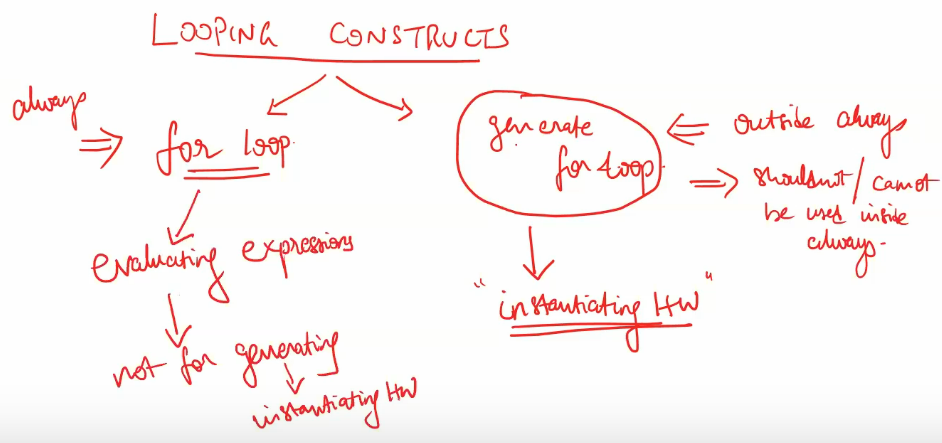 LOOPING CONSTRUCTS
always
for loop.
evaluating expressions
not for generating
instantiating HW
generate
for loop.
outside always
shouldn't / cannot
be used inside
always.
"instantiating HW"